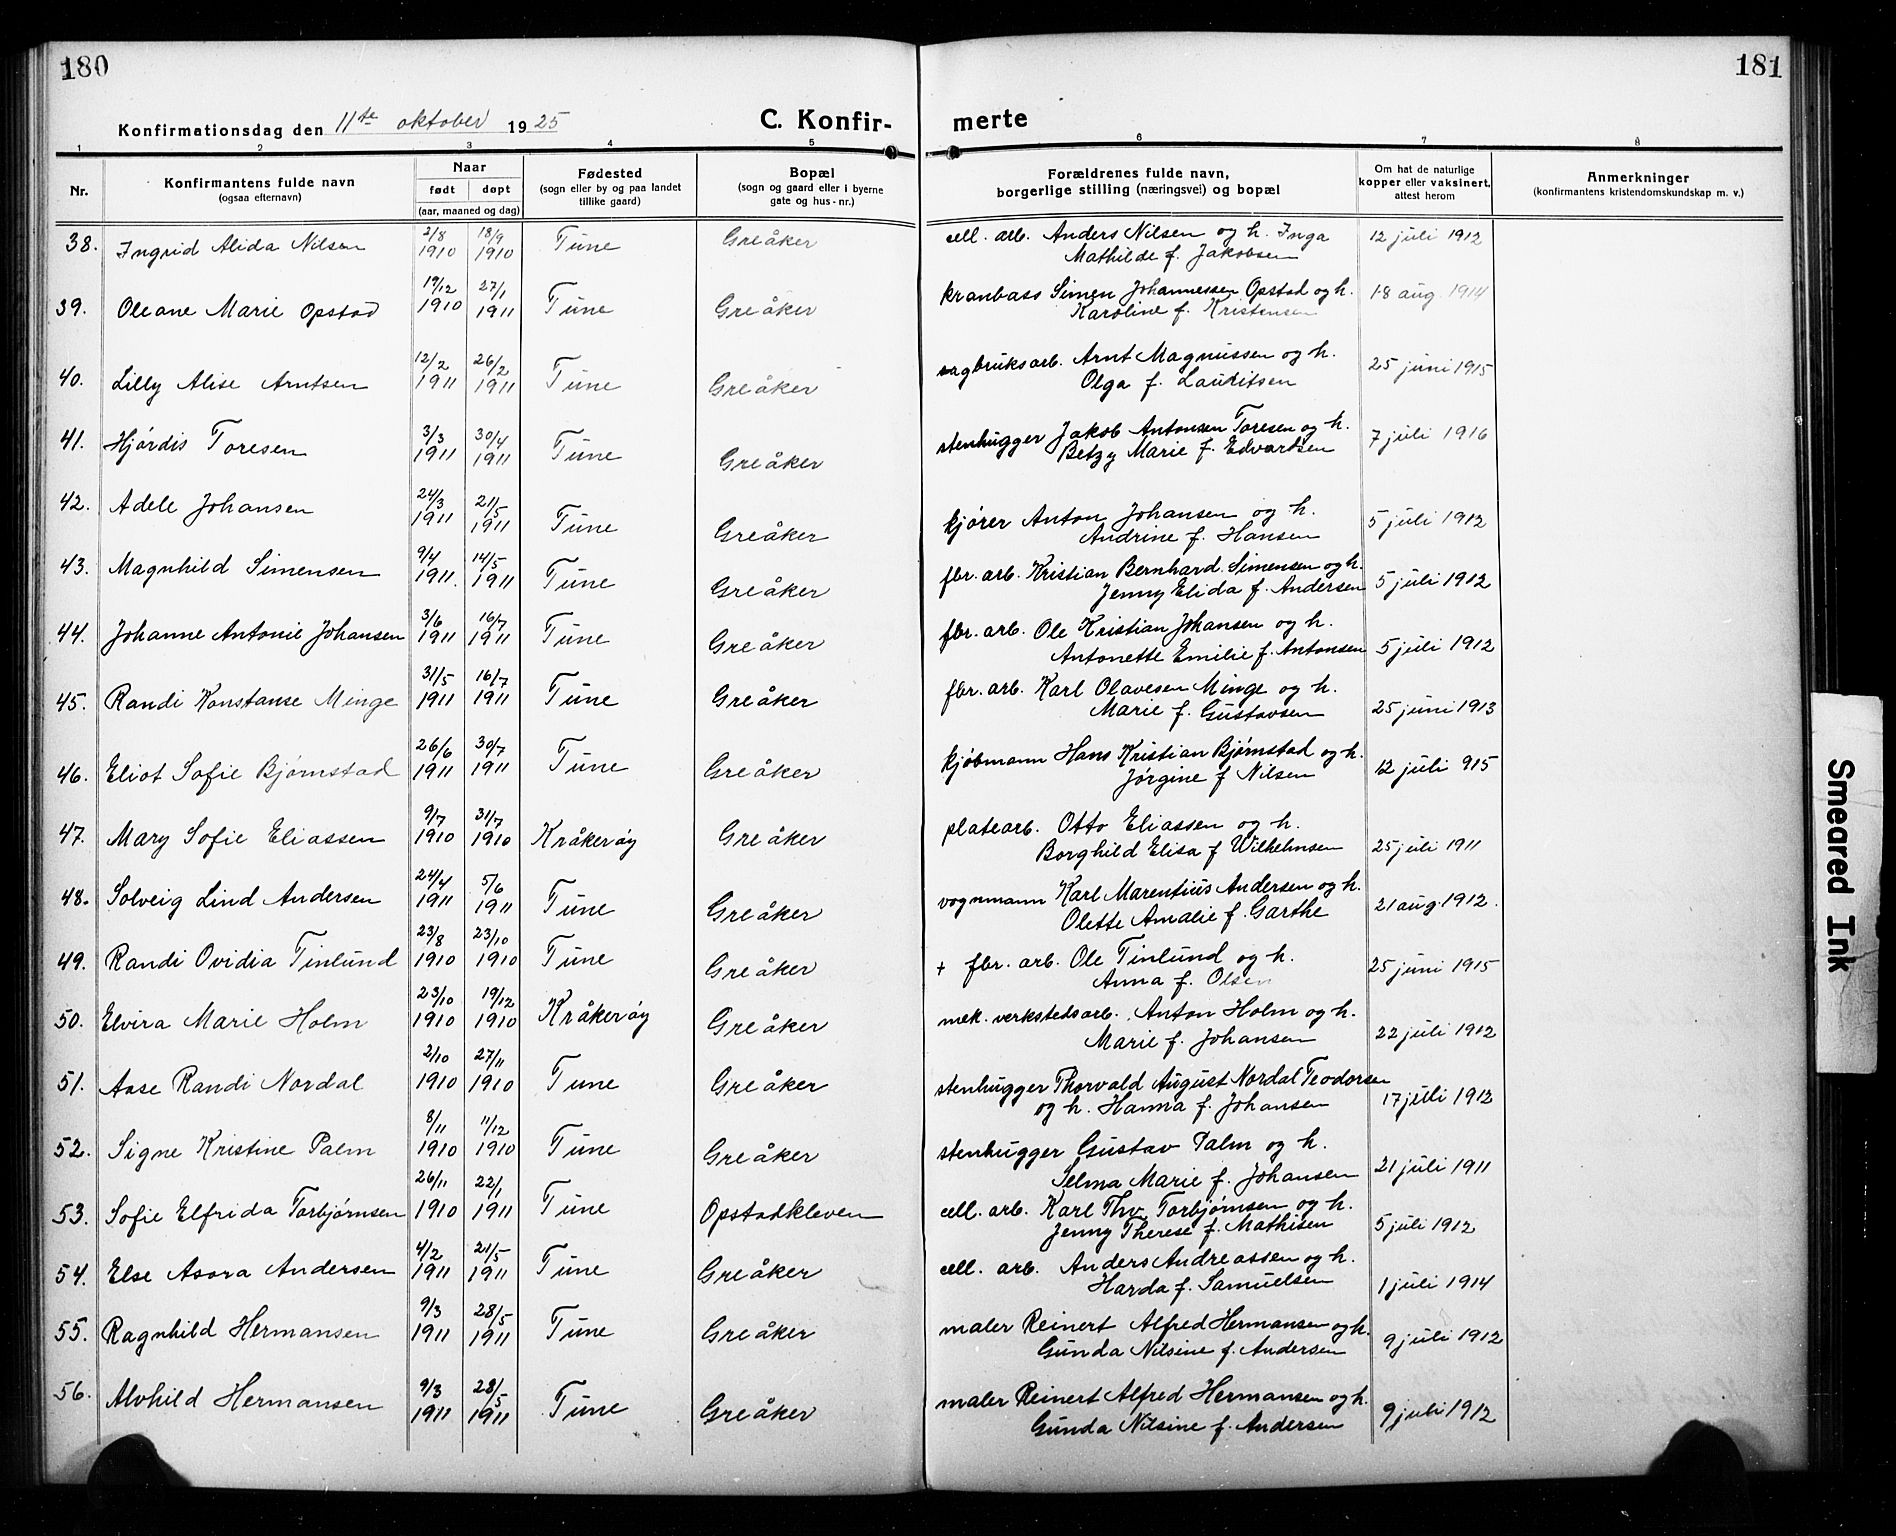 180
181
Konfirmationsdag den 11te oktober 1925
C. Konfir-
merte
1 2 3 4 5 6 7 8
Nr.
Konfirmantens fulde navn
(ogsaa efternavn)
Naar
født døpt
(aar, maaned og dag)
Fødested
(sogn eller by og paa landet
tillike gaard)
Bopæl
(sogn og gaard eller i byerne
gate og hus-nr.)
Forældrenes fulde navn,
borgerlige stilling (næringsvei) og bopæl
Om hat de naturlige
kopper eller vaksinert,
attest herom
Anmerkninger
(konfirmantens kristendomskundskap m. v.)
38. Ingrid Alida Nilsen 2/8 1910 18/9 1910 Tune Greåker cell. arb. Anders Nilsen og h. Inga 12 juli 1912
Mathilde f. Jakobsen
39. Oleane Marie Opstad 19/12 1910 27/1 1911 Tune Greåker kranbass Simen Johannessen Opstad og h. 18 aug. 1914
Karoline f. Kristensen
40. Lilly Alise Arntsen 12/2 1911 26/2 1911 Tune Greåker sagbruksarb. Arnt Magnussen og h. 25 juni 1915
Olga f. Lauritsen
41. Hjørdis Toresen 3/3 1911 30/4 1911 Tune Greåker stenhugger Jakob Antonsen Toresen og h. 7 juli 1916
Betzy Marie f. Edvardsen
42. Adele Johansen 24/3 1911 21/5 1911 Tune Greåker kjører Anton Johansen og h. 5 juli 1912
Andrine f. Hansen
43. Magnhild Simensen 9/4 1911. 14/5 1911 Tune Greåker fbr. arb. Kristian Bernhard Simensen og h.
Jenny Elida f. Andersen 5 juli 1912
44. Johanne Antonie Johansen 3/6 1911 16/7 1911 Tune Greåker fbr. arb. Ole Kristian Johansen og h.
Antonette Emilie f. Antonsen 5 juli 1912
45. Randi Konstanse Minge 31/5 1911 16/7 1911 Tune Greåker fbr. arb. Karl Olavesen Minge og h.
Marie f. Gustavsen 25 juni 1913
46. Eliot Sofie Bjørnstad 26/6 1911 30/7 1911 Tune Greåker kjøbmann Hans Kristian Bjørnstad og h.
Jørgine f Nilsen 12 juli 915
47. Mary Sofie Eliassen 9/7 1910 31/7 1910 Kråkerøy Greåker platearb. Otto Eliassen og h.
Borghild Elisa f Wilhelmsen 25 juli 1911
48. Solveig Lind Andersen 24/4 1911 5/6 1911 Tune Greåker vognmann Karl Marentius Andersen og h.
Olette Amalie f. Garthe 21 aug. 1912.
49. Randi Ovidia Tinlund 23/8 1910 23/10 1910 Tune Greåker + fbr. arb. Ole Tinlund og h.
Anna f. Olsen 25 juni 1915
50. Elvira Marie Holm 23/10 1910 19/12 1910 Kråkerøy Greåker mek. verkstedsarb. Anton Holm og h.
Marie f. Johansen 22 juli 1912
51. Aase Randi Nordal 2/10 1910 27/11 1910 Tune Greåker stenhugger Thorvald August Nordal Teodorsen
og h. Hanna f. Johansen 17 juli 1912
52. Signe Kristine Palm 8/11 1910 11/12 1910 Tune Greåker stenhugger Gustav Palm og h.
Selma Marie f. Johansen 21 juli 1911
53. Sofie Elfrida Torbjørnsen 26/11 1910 22/1 1911 Tune Opstadkleven cell. arb. Karl Thv. Torbjørnsen og h.
Jenny Therese f. Mathisen 5 juli 1912
54. Else Asora Andersen 4/2 1911 21/5 1911 Tune Greåker cell. arb. Anders Andreassen og h.
Harda f. Samuelsen 1 juli 1914
55. Ragnhild Hermansen 9/3 1911 28/5 1911 Tune Greåker maler Reinert Alfred Hermansen og h.
Gunda Nilsine f. Andersen 9 juli 1912
56. Alvhild Hermansen 9/3 1911 28/5 1911 Tune Greåker maler Reinert Alfred Hermansen og h.
Gunda Nilsine f. Andersen 9 juli 1912
Smeared Ink